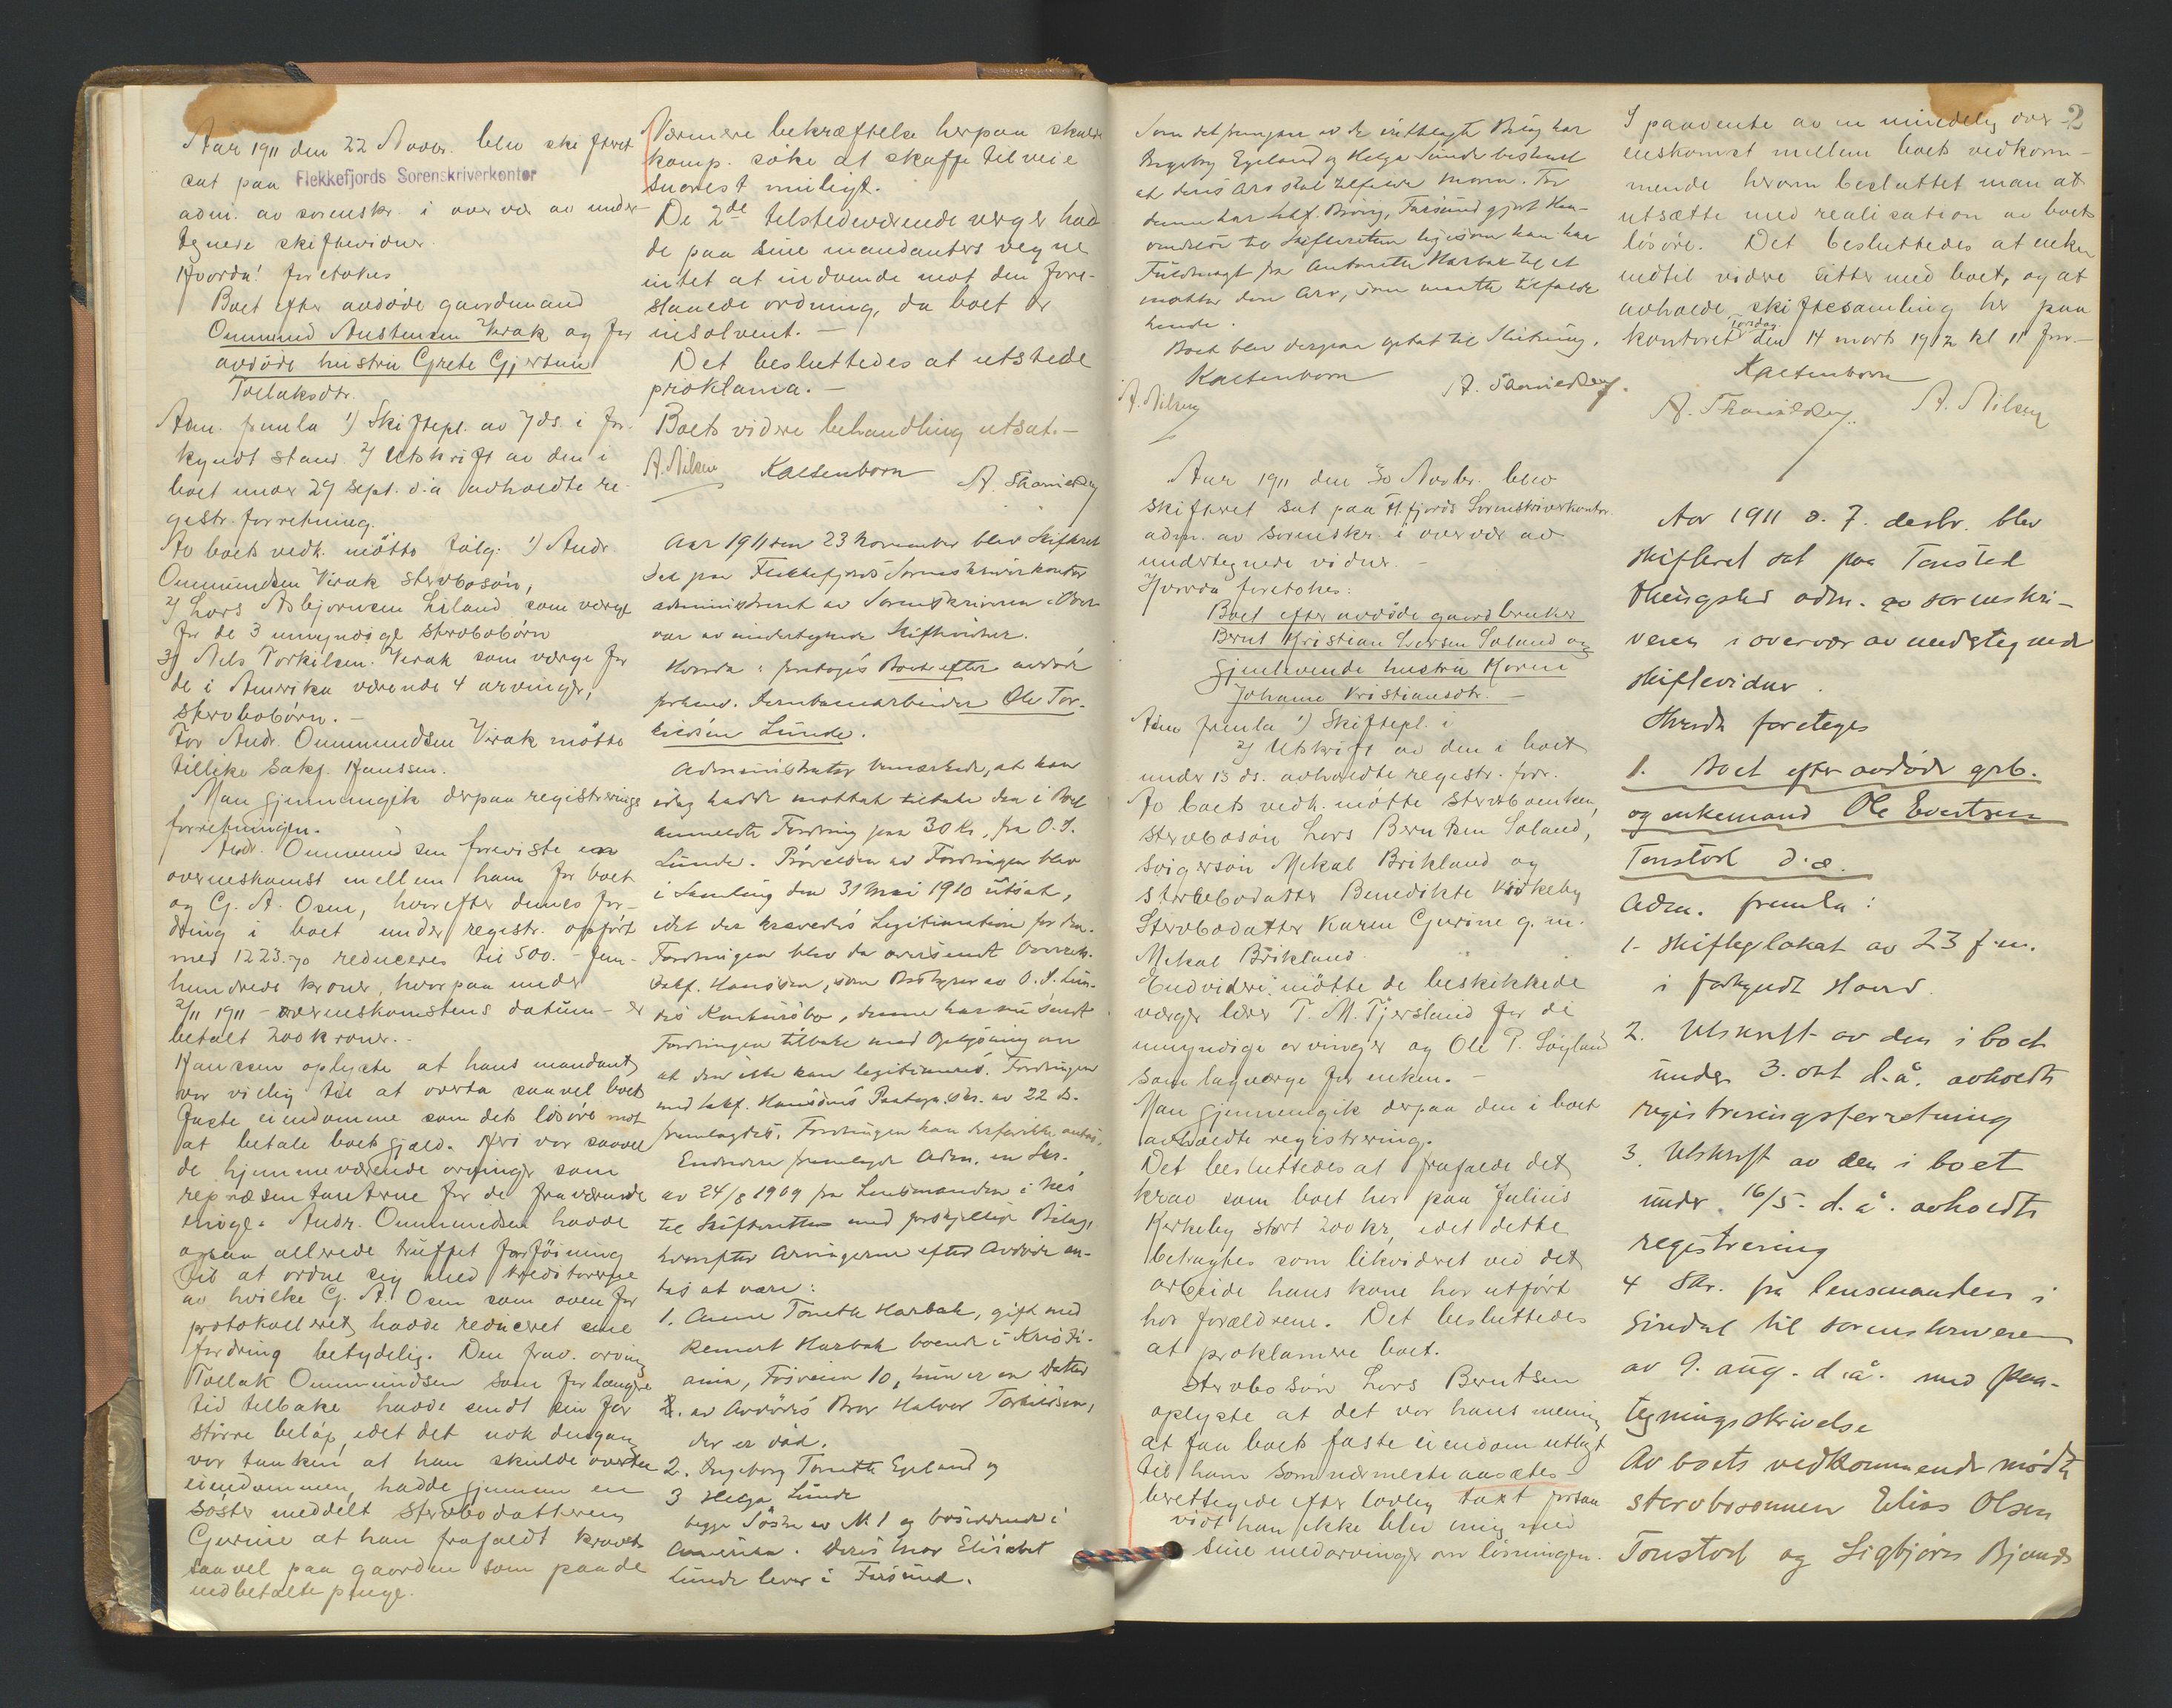 Aar 1911 den 22 Novbr. blev skifteret
sat paa Flekkefjords Sorenskriverkontor
adm. av sorenskr. i overvær av under-
tegnede skiftevidner.
Hvorda: foretokes
Boet efter avdøde gaardmand
Ommund Austensen Virak og før
avdøde hustru Grete Gjertine
Tollaksdtr.
Adm. fremla 1) Skiftepl. av 7 ds. i for-
kyndt stand. 2) Utskrift av den i
boet under 29 sept. d.a avholdte re-
gistr. forretning.
Av boets vedk. møtte følg: 1) Andr.
Ommundsen Virak stervbosøn,
2) Lars Asbjørnsen Liland som verge
for de 3 umyndige stervbobørn
3) Nels Torkilsen Virak som verge for
de i Amerika værende 4 arvinger,
stervbobørn.-
For Andr. Ommundsen Virak møtte
tillike sakf. Hanssen.
Man gjennemgik derpaa registrerings
forretningen.
Andr. Ommundsen foreviste en
overenskomst mellem ham for boet
og G. A. Osen, hvorefter dennes for-
dring i boet under registr. opført
med 1223.70 reduceres til 500.- fem-
hundrede kroner, hvorpaa under
2/11 1911 - overenskomstens datum - er
betalt 200 kroner.-
Hanssen oplyste at hans mandant
var villig til at overta saavel boets
faste eiendomme som dets løsøre mot
at betale boets gjæld. Heri var saavel
de hjemmeværende arvinger som
repræsentanterne for de fraværende
enige. Andr. Ommundsen hadde
ogsaa allerede truffet forføining
til at ordne sig med kreditorerne
av hvilke G. A. Osen som oven for
protokolleret hadde reduceret sine
fordring betydelig. Den frav. arving
Tollak Ommundsen som for længre
tid tilbake hadde sendt sin far
større beløp, idet det nok dengang
var tanken at han skulde overta
eiendommen, hadde gjennem en
søster meddelt stervbodatteren
Gurine at han frafaldt kravet
saavel paa gaarden som paa de
indbetalte penge.
Nærmere bekræftelse herpaa skulde
komp. søke at skaffe tilveie
snarest muligt.
De 2de tilstedeværende verger had-
de paa sine mandanters vegne
intet at indvende mot den fore-
slaaede ordning, da boet er
insolvent.-
Det besluttedes at utstede
proklama.-
Boets videre behandling utsat.-
A. Nilsen Kaltenborn
Aar 1911 den 23 November blev Skifteret
sat paa Flekkefjords Sorenskriverkontor
administreret av Sorenskriveren i Over-
vær av undertegnede Skiftevidner.
Hvorda: foretoges Boet efter avdøde
forhenv. Jernbanearbeider Ole Tor-
kildsen Lunde.
Administrator bemærkede, at han
idag hadde mottat tilbake den i Boet
anmeldte Fordring paa 30 Kr. fra O. S.
Lunde. Prøvelsen av Fordringen blev
i Samling den 31 Mai 1910 utsat,
idet der krævedes Legitimation for den.
Fordringen blev da oversendt Overrets-
sakf. Hanssen, som Bestyrer av O. S. Lun-
des Konkursbo, denne har nu sendt
Fordringen tilbake med Oplysning om
at den ikke kan legitimeres. Fordringen
med sakf. Hanssens Paategn. skr. av 22 ds.
fremlagdes. Fordringen kan derfor ikke antas.
Endvidere fremlagde Adm. en Skr.
av 24/8 1909 fra Lensmanden i Nes
til Skifteretten med forskjellige Bilag,
hvorefter Arvingerne efter Avdøde an-
tas at være:
1. Anne Tomette Harbak, gift med
Reinert Harbak boende i Kristi-
ania, Fossveien 10, hun er en Datter
av Avdødes Bror Halvor Torkildsen,
der er død.
2. Ingeborg Tomette Egeland og
3 Helga Lunde
begge Søstre av N. 1 og bosiddende i
Amerika. Deres Mor Elisabet
Lunde lever i Farsund.
Som det fremgaar av de vedlagte Bilag har
Ingeborg Egeland og Helga Lunde bestemt
at deres Arv skal tilfalde Moren. For
denne har sakf. , Farsund gjort Hen-
vendelse til Skifteretten ligesom han har
Fuldmagt fra Antomette Harbak til at
motta den Arv, som maatte tilfalde
hende.
Boet blev derpaa optat til Slutning.
Kaltenborn
A. Nilsen
Aar 1911 den 30 Novbr. blev
skifteret sat paa Fl.fjords Sorenskriverkontor
adm. av sorenskr. i overvær av
undertegnede vidner.-
Hvorda foretokes:
Boet efter avdøde gaardbruker
Bernt Kristian Larsen Saland og
gjenlevende hustru Maren
Johanne Kristiansdtr.-
Adm fremla 1) Skiftepl. i
2) Utskrift av den i boet
under 13 ds. avholdte registr. forr.
Av boets vedk. møtte stervboenken,
stervbosøn Lars Berntsen Saland,
svigersøn Mekal Birkland og
stervbodatter Benedikte Kirkeby
Stervbodatter Karen Gurine g.m.
Mekal Birkland.
Endvidere møtte de beskikkede
værger lærer T. M. Tjersland for de
umyndige arvinger og Ole P. Løyland
som lagværge for enken.-
Man gjennemgik derpaa den i boet
avholdte registrering.
Det besluttedes at frafalde det
krav som boet har paa Julius
Kirkeby stort 200 kr, idet dette
betragtes som likvideret ved det
arbeide hans kone har utført
hos forældrene. Det besluttedes
at proklamere boet.
Stervbosøn Lars Berntsen
oplyste at det var hans mening
at faa boets faste eiendom utlagt
til ham som nærmeste aasætes-
berettigede efter lovlig takt forsaa
vidt han ikke blev enig med
sine medarvinger om løsningen.
2
I paavente av en mindelig over-
enskomst mellem boets vedkom-
mende herom besluttet man at
utsætte med realisation av boets
løsøre. Det besluttedes at enken
indtil videre sitter med boet, og at
avholde skiftesamling her paa
kontoret torsdag den 14 marts 1912 kl 11 fm.-
Kaltenborn
A. Nilsen
Aar 1911 d. 7. desbr. blev
skifteret sat paa Tonstad
thingsted adm. av sorenskri-
veren i overvær av undertegnede
skiftevidner.
Hvorda foretoges
1. Boet efter avdøde grb.
og enkemand Ole Evertsen
Tonstad d.æ.
Adm. fremla:
1. skifteplakat av 23 f.m.
i forkyndt stand.
2. Utskrift av den i boet
under 3. okt d.å. avholdte
registreringsforretning
3. Utskrift av den i boet
under 16/5. d.å. avholdte
registrering
4 Skr. fra lensmanden i
Sirdal til sorenskriveren
av 9. aug. d.å. med paa-
tegningsskrivelse
Av boets vedkommende mødte
stervbosønnen Elias Olsen
Tonstad og Sigbjørn Bjunes